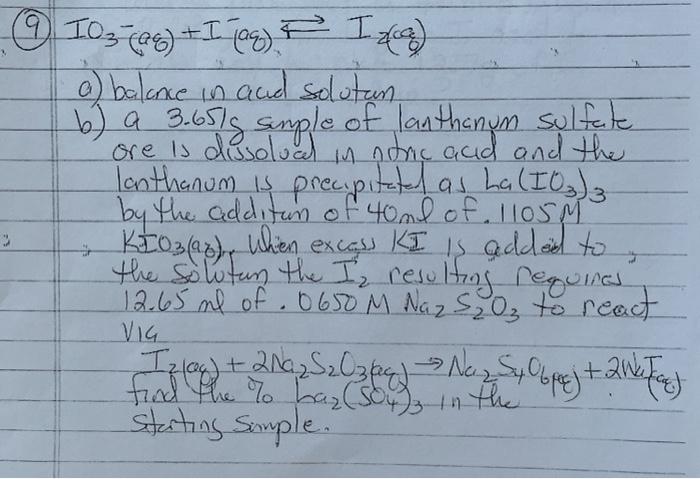 9) IO3⁻(aq) + I⁻(aq) ⇌ I2(aq)
a) balance in acid solution
b) a 3.651g sample of lanthanum sulfate
ore is dissolved in nitric acid and the
lanthanum is precipitated as La(IO3)3
by the addition of 40ml of .1105M
KIO3(aq). When excess KI is added to
the solution the I2 resulting requires
12.65 ml of .0650 M Na2S2O3 to react
via
I2(aq) + 2Na2S2O3(aq) → Na2S4O6(aq) + 2NaI(aq)
find the % La2(SO4)3 in the
starting sample.